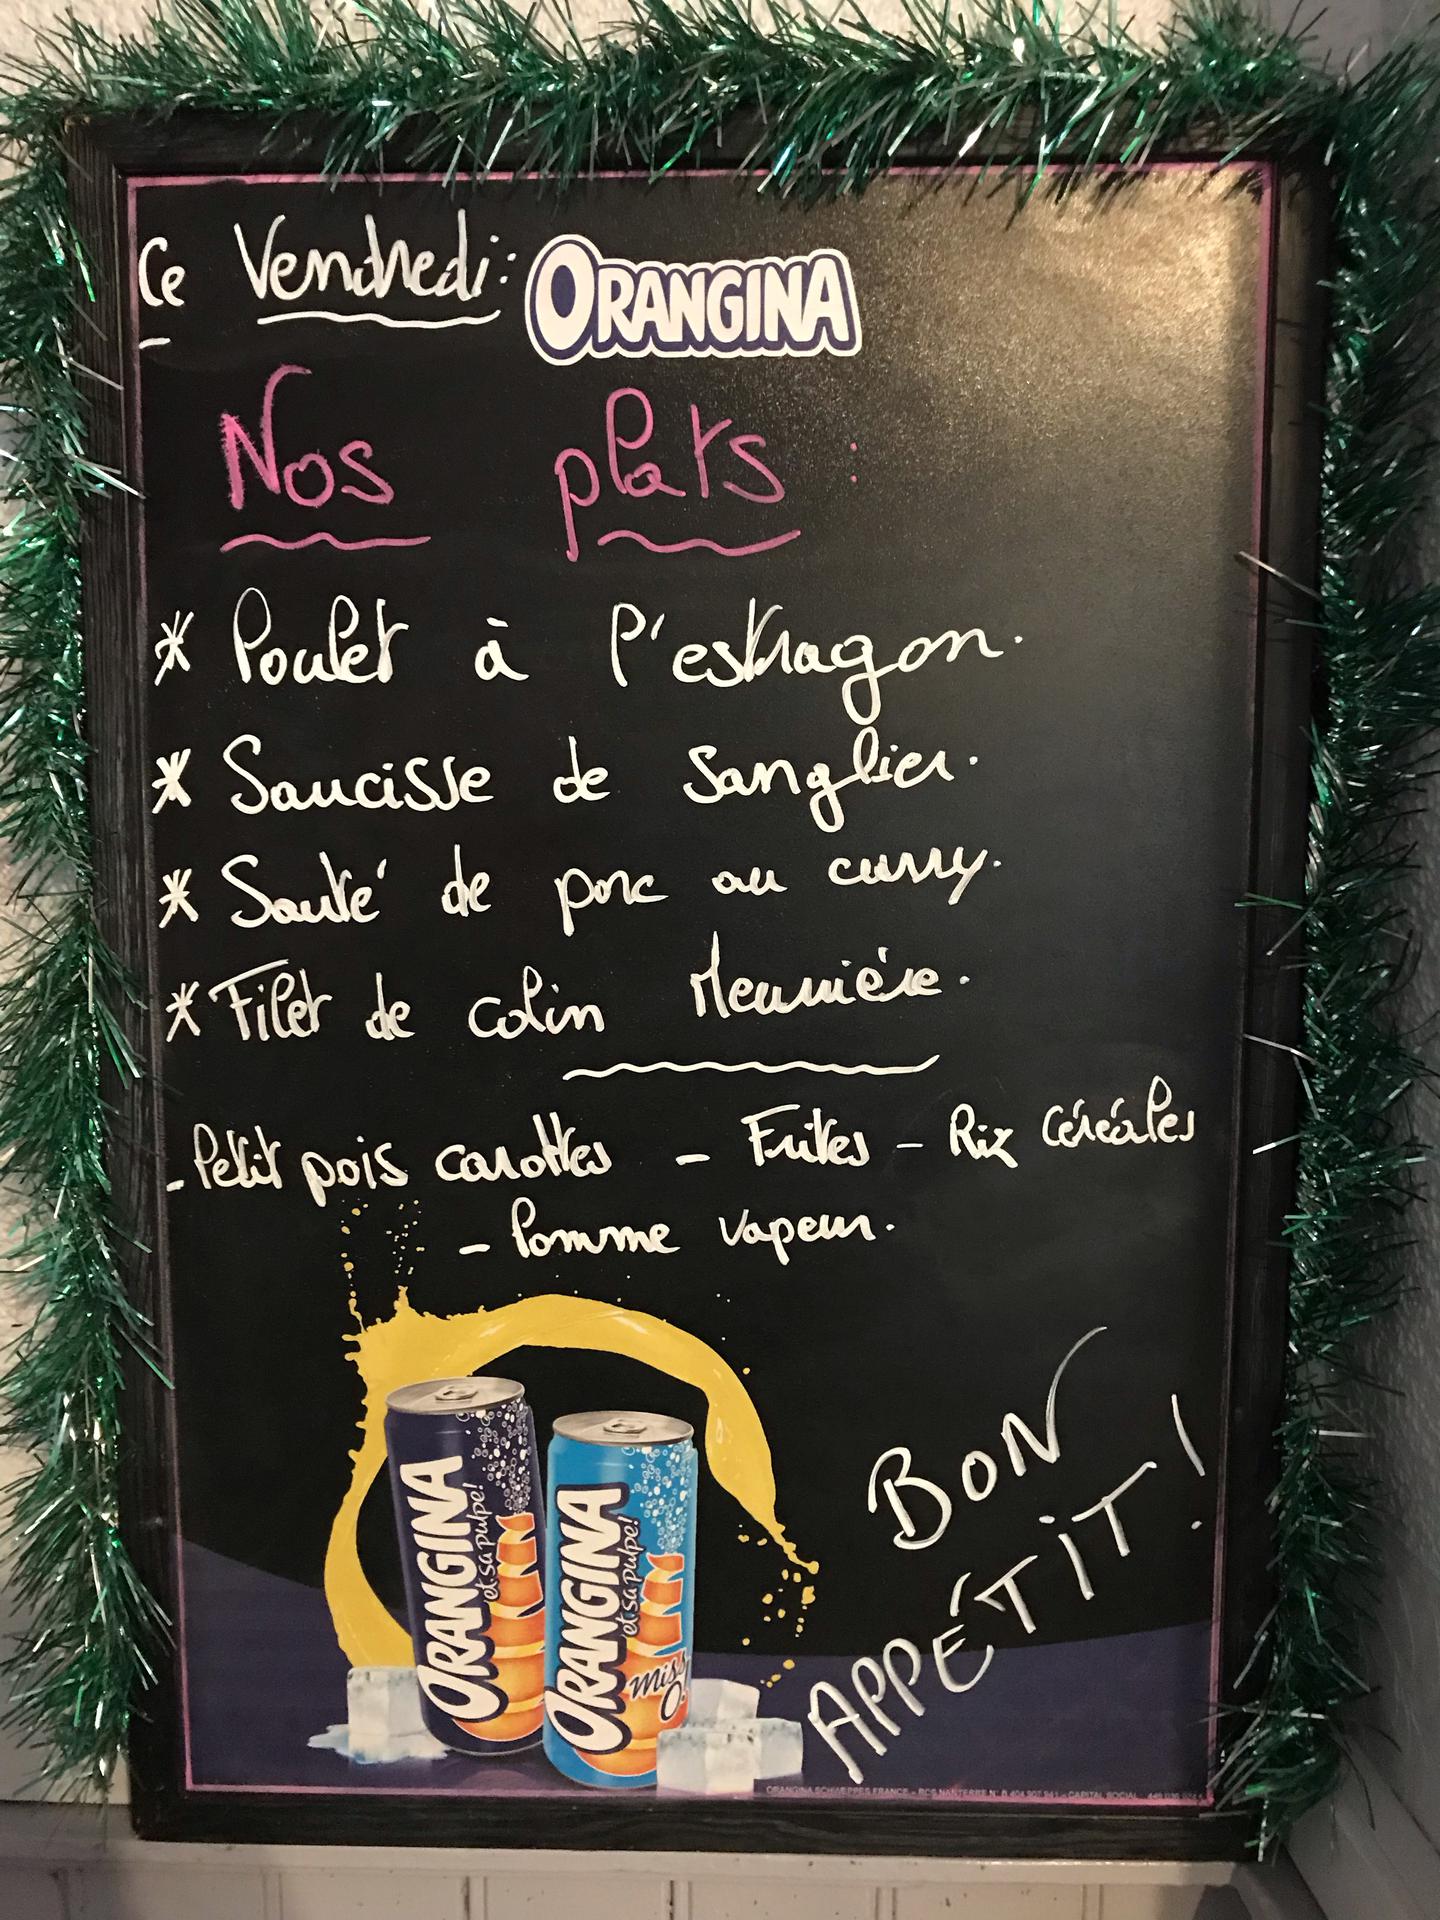 Ce Vendredi: ORANGINA
Nos plats :
* Poulet à l'estragon.
* Saucisse de Sanglier.
* Sauté de porc au curry.
* Filet de colin Meunière.
- Petit pois carottes - Frites - Riz céréales
- Pomme vapeur.
ORANGINA et sa pulpe!
ORANGINA et sa pulpe! miss O!
BON
APPÉTIT!
ORANGINA SCHWEPPES FRANCE - RCS NANTERRE N° B 404 907 941 - CAPITAL SOCIAL